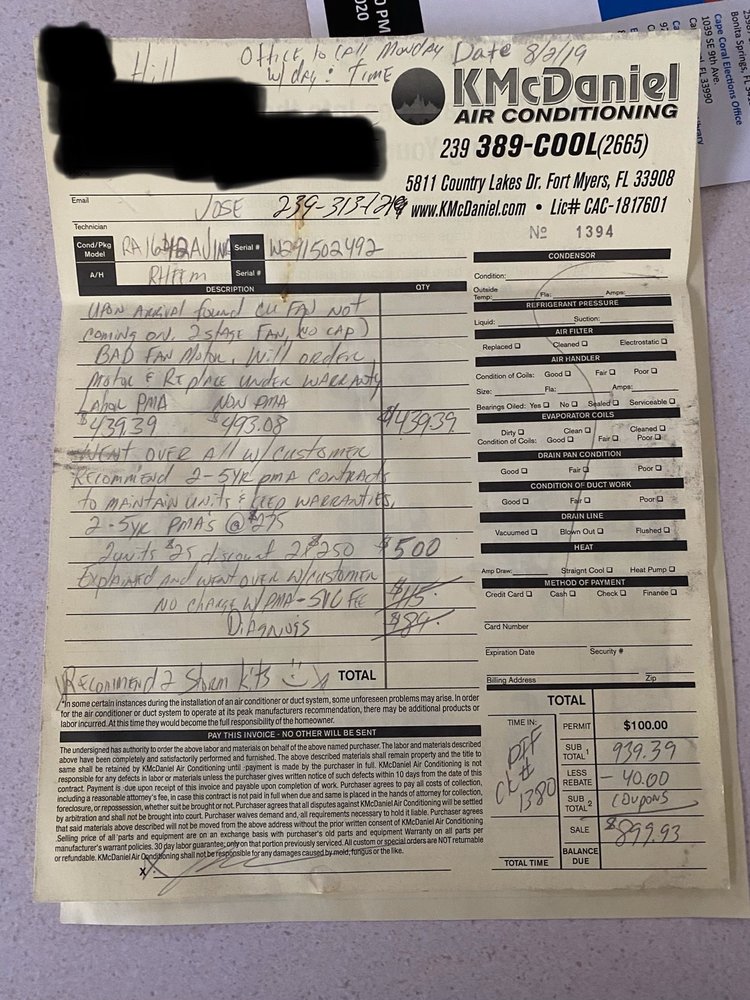 Office to Call Monday Date 8/2/19
Hill
w/ day : TIME
KMcDaniel
AIR CONDITIONING
239 389-COOL(2665)
5811 Country Lakes Dr. Fort Myers, FL 33908
www.KMcDaniel.com • Lic# CAC-1817601
Email
JOSE 239-313-
Technician
No 1394
Cond/Pkg Model
Serial # W291502492
A/H RHEEM Serial #
DESCRIPTION QTY
UPON ARRIVAL FOUND CU FAN NOT
COMING ON. 2 STAGE FAN, (NO CAP)
BAD FAN MOTOR, Will ORDER
MOTOR & REPLACE UNDER WARRANTY
LABOR PMA NON PMA
$439.39 $493.08 $439.39
WENT OVER All W/CUSTOMER
RECOMMEND 2-5YR PMA CONTRACTS
to MAINTAIN UNITS & KEEP WARRANTIES,
2-5YR PMAS @ $275
2 UNITS $25 discount 2 $250 $500
EXPLAINED AND WENT OVER W/CUSTOMER
NO CHARGE W/PMA - SVC FEE $115.
DIAGNOSIS $89.
RECOMMEND 2 STORM KITS
TOTAL
CONDENSOR
Condition:
Outside Temp: Fla: Amps:
REFRIGERANT PRESSURE
Liquid: Suction:
AIR FILTER
Replaced ☐ Cleaned ☐ Electrostatic ☐
AIR HANDLER
Condition of Coils: Good ☐ Fair ☐ Poor ☐
Size: Fla: Amps:
Bearings Oiled: Yes ☐ No ☐ Sealed ☐ Serviceable ☐
EVAPORATOR COILS
Dirty ☐ Clean ☐ Cleaned ☐
Condition of Coils: Good ☐ Fair ☐ Poor ☐
DRAIN PAN CONDITION
Good ☐ Fair ☐ Poor ☐
CONDITION OF DUCT WORK
Good ☐ Fair ☐ Poor ☐
DRAIN LINE
Vacuumed ☐ Blown Out ☐ Flushed ☐
HEAT
Amp Draw: Straignt Cool ☐ Heat Pump ☐
METHOD OF PAYMENT
Credit Card ☐ Cash ☐ Check ☐ Finance ☐
Card Number
Expiration Date Security #
Billing Address Zip
*In some certain instances during the installation of an air conditioner or duct system, some unforeseen problems may arise. In order
for the air conditioner or duct system to operate at its peak manufacturers recommendation, there may be additional products or
labor incurred. At this time they would become the full responsibility of the homeowner.
PAY THIS INVOICE - NO OTHER WILL BE SENT
The undersigned has authority to order the above labor and materials on behalf of the above named purchaser. The labor and materials described
above have been completely and satisfactorily performed and furnished. The above described materials shall remain the property and the title to
same shall be retained by KMcDaniel Air Conditioning until payment is made by the purchaser in full. KMcDaniel Air Conditioning is not
responsible for any defects in labor or materials unless the purchaser gives written notice of such defects within 10 days from the date of this
contract. Payment is due upon receipt of this invoice and payable upon completion of work. Purchaser agrees to pay all costs of collection,
including a reasonable attorney's fee, in case this contract is not paid in full when due and same is placed in the hands of attorney for collection,
foreclosure, or repossession, whether suit be brought or not. Purchaser agrees that all disputes against KMcDaniel Air Conditioning will be settled
by arbitration and shall not be brought into court. Purchaser waives demand and, all requirements necessary to hold it liable. Purchaser agrees
that said materials above described will not be moved from the above address without the prior written consent of KMcDaniel Air Conditioning
Selling price of all parts and equipment are on an exchange basis with purchaser's old parts and equipment Warranty on all parts per
manufacturer's warrant policies. 30 day labor guarantee, only on that portion previously serviced. All custom or special orders are NOT returnable
or refundable. KMcDaniel Air Conditioning shall not be responsible for any damages caused by mold, fungus or the like.
x
TOTAL
TIME IN: PERMIT $100.00
PIF
CK#
1380
SUB TOTAL 1 939.39
LESS REBATE - 40.00
SUB TOTAL 2 COUPONS
SALE $899.93
TOTAL TIME BALANCE DUE
0 PM
2020
Bonita Springs, FL
Cape Coral Elections Office
1039 SE 9th Ave.
FL 33990